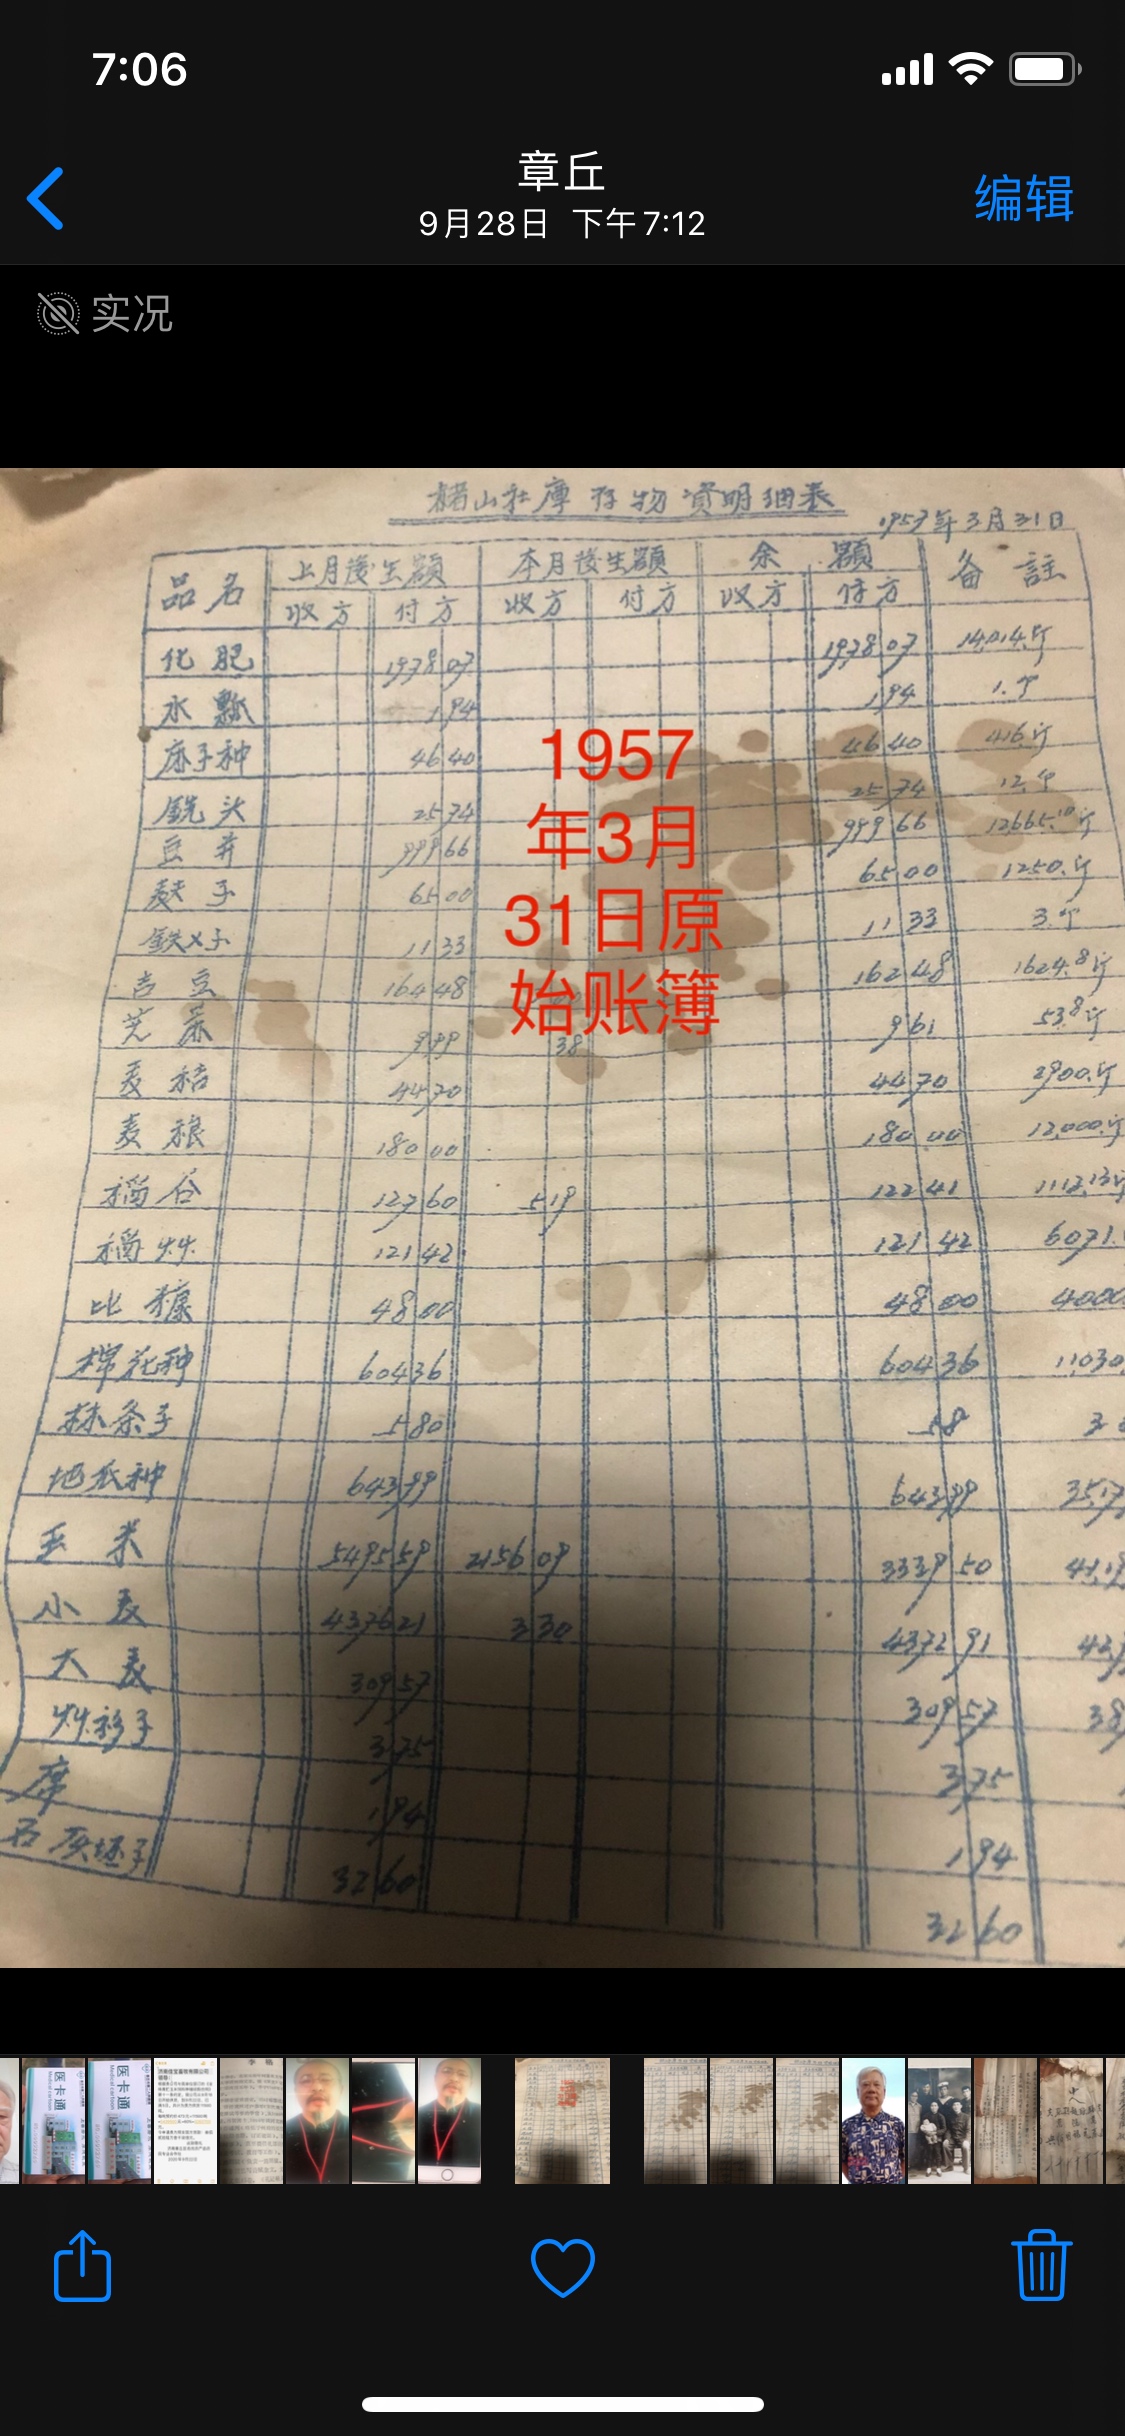 7:06
章丘
9月28日 下午7:12
编辑
实况
楮山社庫存物資明细表
1957年3月31日
品名 上月發生額 本月發生額 余額 备註
收方 付方 收方 付方 收方 付方
化肥 1978 07 1978 07 14,014斤
水瓢 1 94 1 94 1.个
麻子种 46 40 46 40 416斤
銑头 25 74 25 74 12.个
豆并 999 66 999 66 12665.10斤
麩子 65 00 65 00 1250.斤
鉄叉子 11 33 11 33 3.个
吉豆 164 48 162 48 1624.8斤
芝麻 9 99 38 9 61 53.8斤
麦秸 44 70 44 70 2900.斤
麦粮 180 00 180 00 12,000.斤
稻谷 127 60 5 19 122 41 1112.13斤
稻艸 121 42 121 42 6071.
比糠 48 00 48 00 4000
棉花种 604 36 604 36 11030
条子 5 80 5 8
地瓜种 643 99 643 99 3517
玉米 5495 59 2156 09 3339 50
小麦 4376 21 3 30 4372 91
大麦 309 57 309 57 38
3 75 3 75
1 94 1 94
石灰坯子 32 60 32 60
1957
年3月
31日原
始账簿
医卡通
医卡通